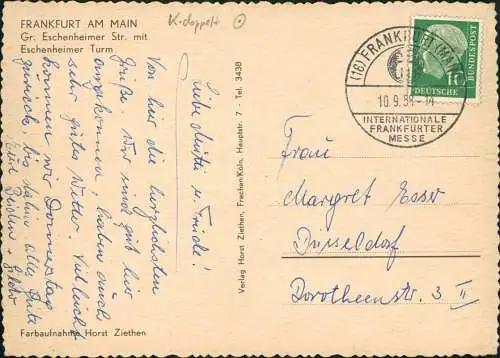 FRANKFURT AM MAIN
Gr. Eschenheimer Str. mit
Eschenheimer Turm
K-doppelt
Liebe Mutti u. Friede!
Von hier die herzlichsten
Grüße. Wir sind gut hier
angekommen, haben auch
sehr gutes Wetter. Vielleicht
kommen wir Donnerstag
zurück, bis dahin alles Gute
Verlag Horst Ziethen, Frechen/Köln, Hauptstr. 7 · Tel. 3438
(16) FRANKFURT (MAIN)
10.9.56
INTERNATIONALE
FRANKFURTER
MESSE
10
DEUTSCHE
BUNDESPOST
Frau
Margret Esser
Düsseldorf
Dorotheenstr. 3 II
Farbaufnahme Horst Ziethen